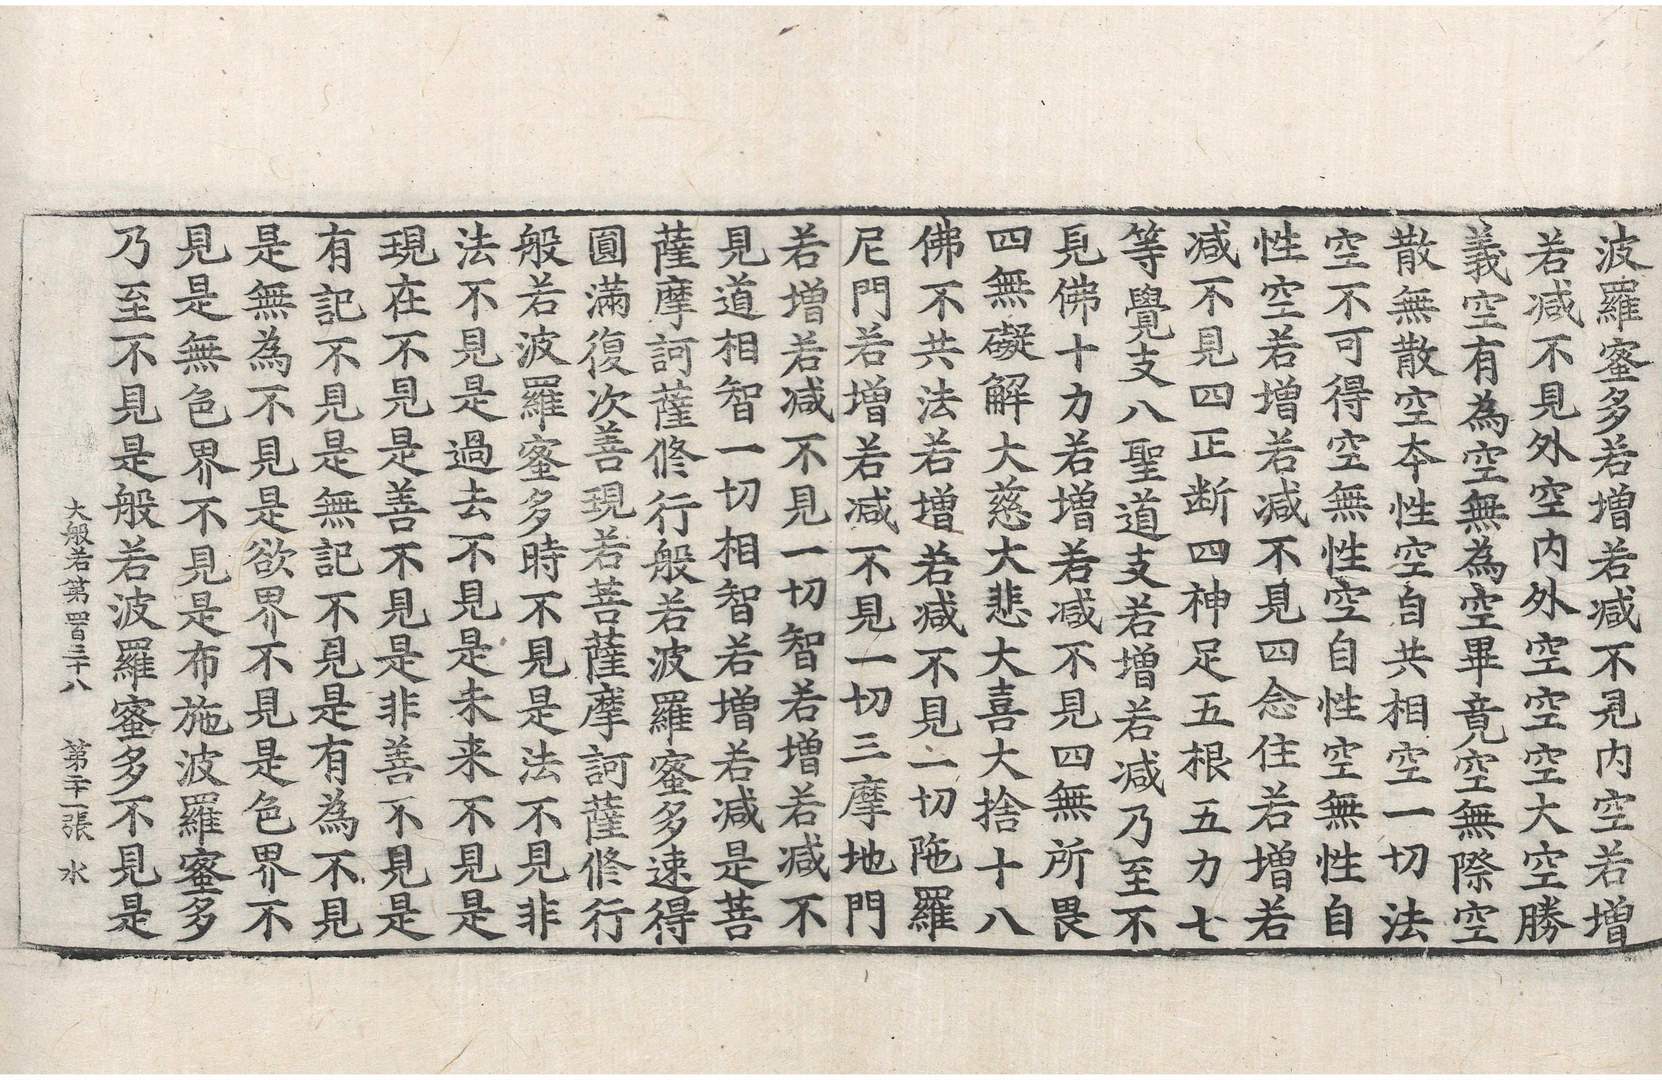 波羅蜜多若增若减不見内空若增
若减不見外空内外空空空大空勝
義空有為空無為空畢竟空無際空
散無散空夲性空自共相空一切法
空不可得空無性空自性空無性自
性空若增若减不見四念住若增若
减不見四正断四神足五根五力七
等覺支八聖道支若增若减乃至不
見佛十力若增若减不見四無所畏
四無礙解大慈大悲大喜大捨十八
佛不共法若增若减不見一切陁羅
尼門若增若减不見一切三摩地門
若增若减不見一切智若增若减不
見道相智一切相智若增若减是菩
薩摩訶薩修行般若波羅蜜多速得
圓滿復次善現若菩薩摩訶薩修行
般若波羅蜜多時不見是法不見非
法不見是過去不見是未来不見是
現在不見是善不見是非善不見是
有記不見是無記不見是有為不見
是無為不見是欲界不見是色界不
見是無色界不見是布施波羅蜜多
乃至不見是般若波羅蜜多不見是
大般若第四百三十八 第二十一張 水